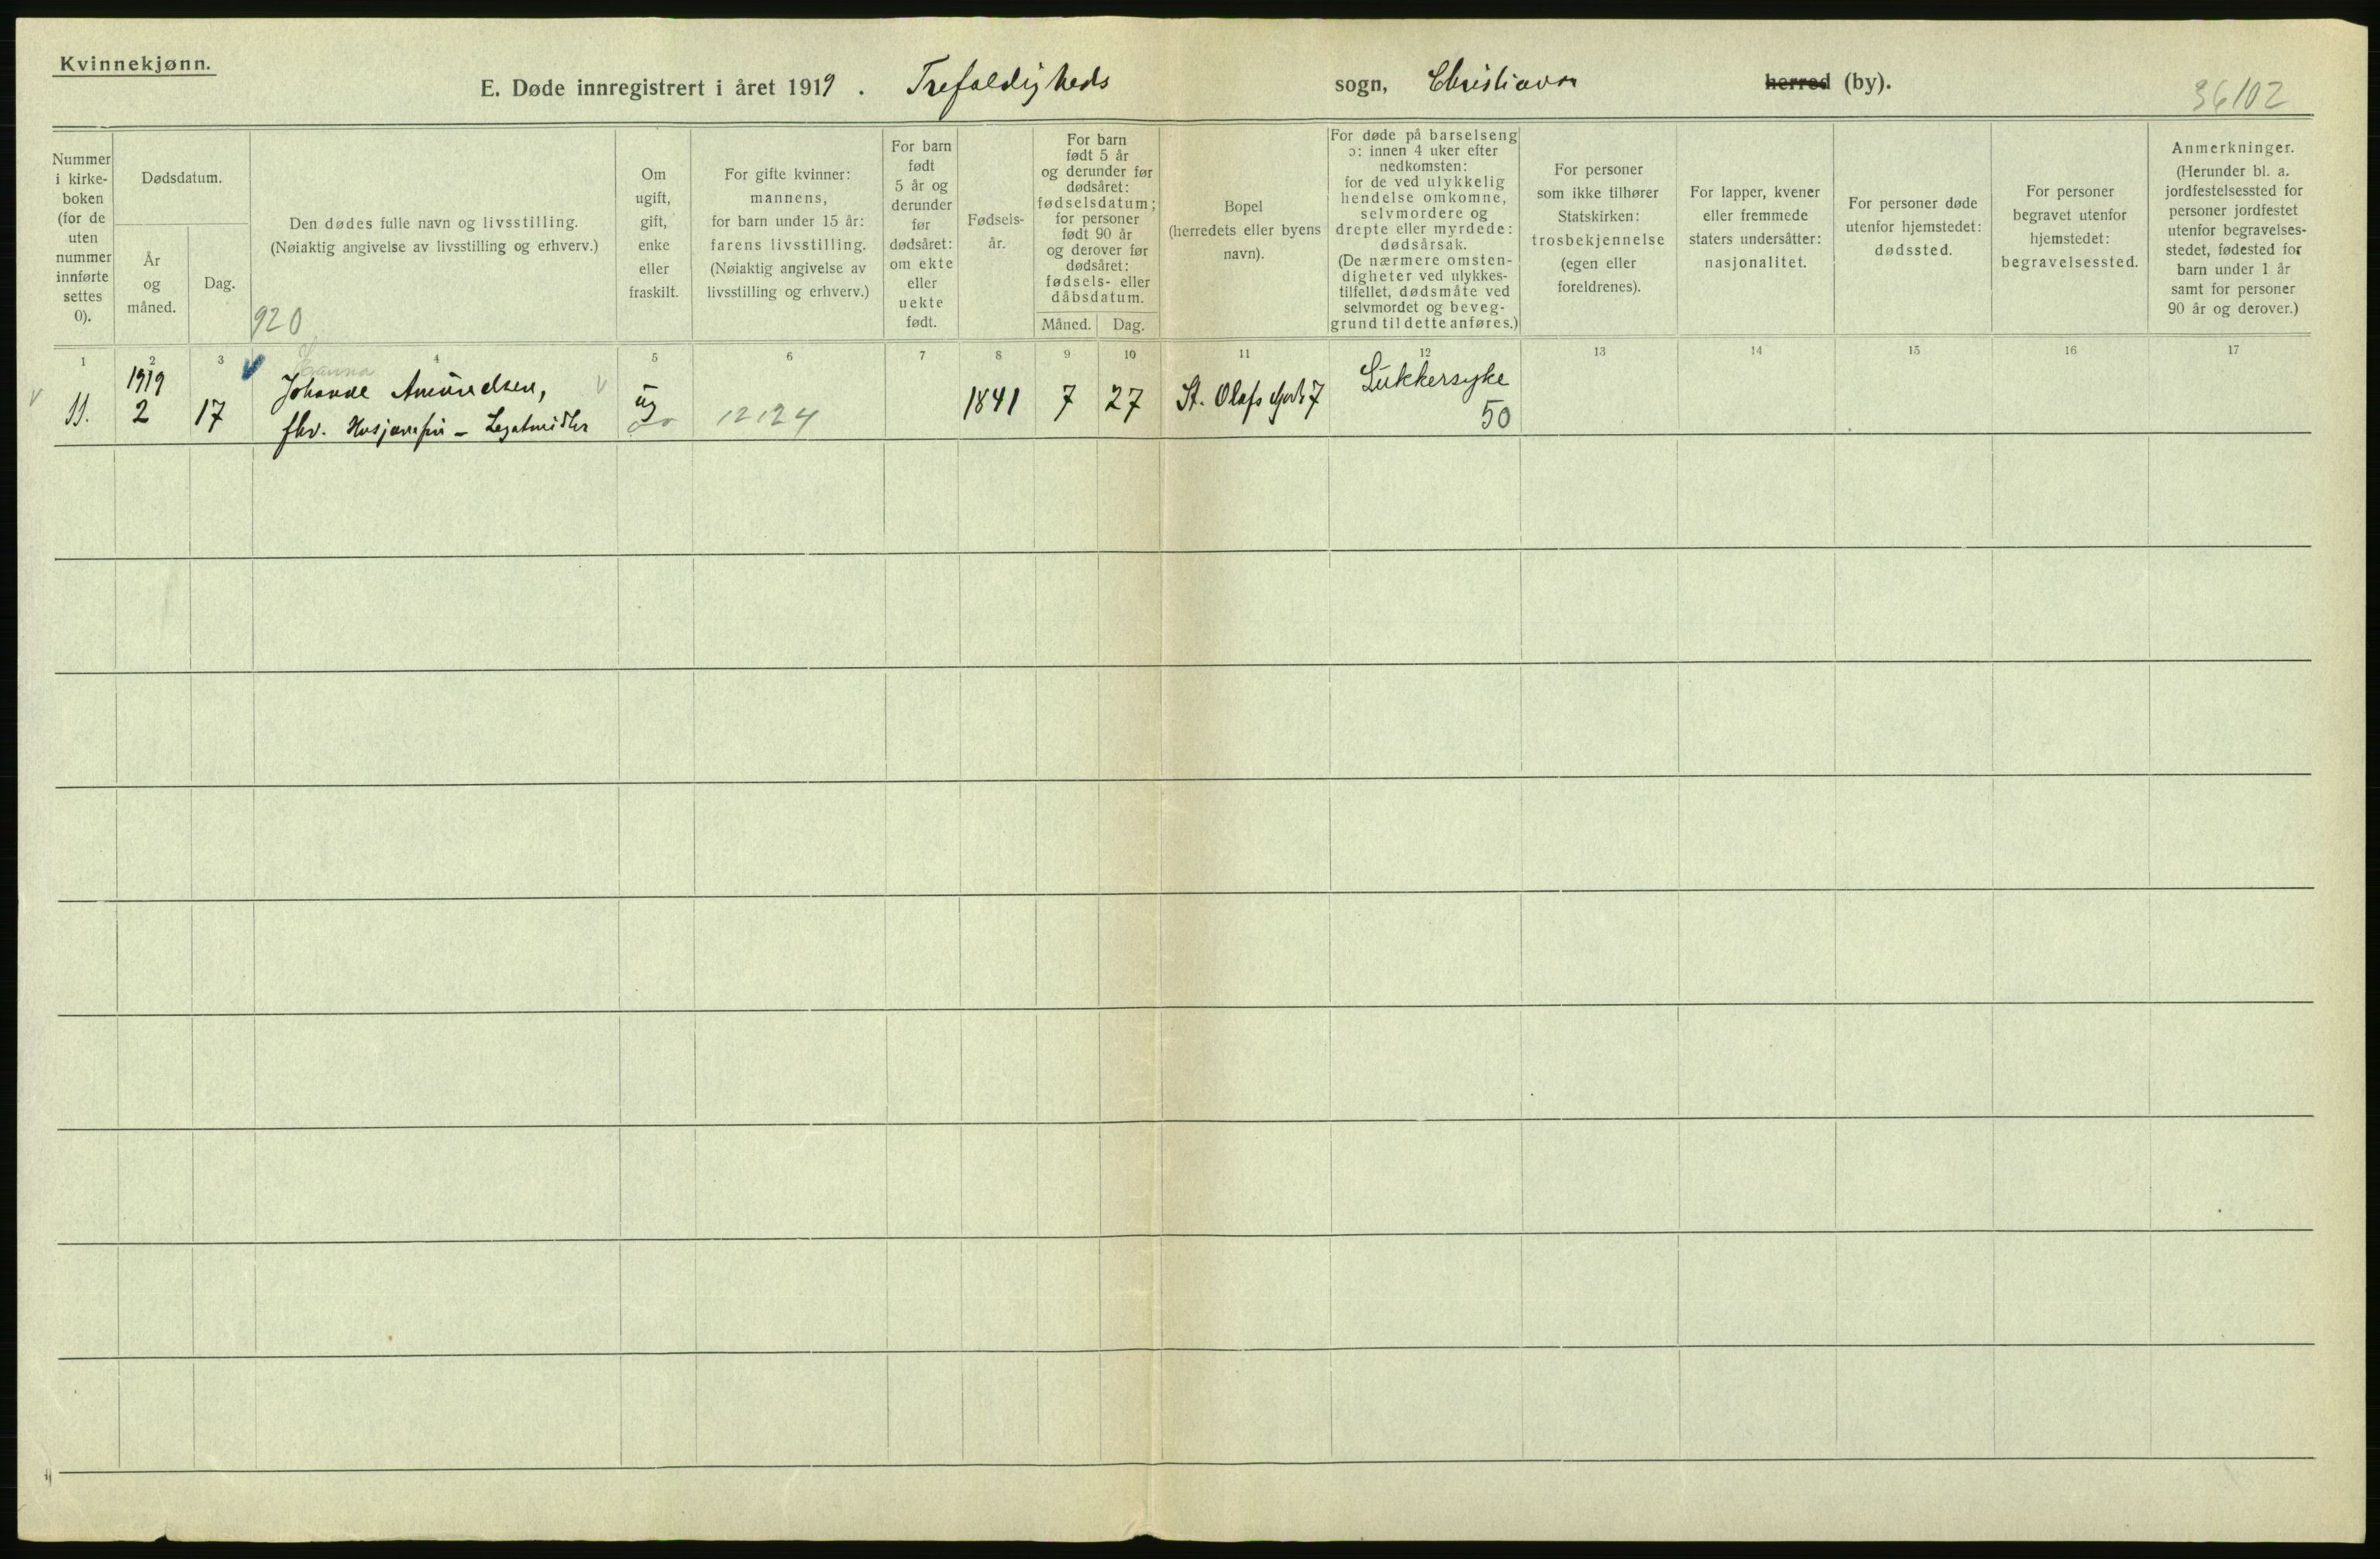 Kvinnekjønn.
E. Døde innregistrert i året 1919. Trefoldigheds sogn, Christiania herred (by).
36/02
Nummer i kirke- boken (for de uten nummer innførte settes 0).
Dødsdatum.
År og måned.
Dag.
Den dødes fulle navn og livsstilling.
(Nøiaktig angivelse av livsstilling og erhverv.)
920
Om ugift, gift, enke eller fraskilt.
For gifte kvinner: mannens, for barn under 15 år: farens livsstilling. (Nøiaktig angivelse av livsstilling og erhverv.)
For barn født 5 år og derunder før dødsåret: om ekte eller uekte født.
Fødsels- år.
For barn født 5 år og derunder før dødsåret: fødselsdatum; for personer født 90 år og derover før dødsåret: fødsels- eller dåbsdatum.
Måned.
Dag.
Bopel (herredets eller byens navn).
For døde på barselseng ɔ: innen 4 uker efter nedkomsten: for de ved ulykkelig hendelse omkomne, selvmordere og drepte eller myrdede: dødsårsak. (De nærmere omsten- digheter ved ulykkes- tilfellet, dødsmåte ved selvmordet og beveg- grund til dette anføres.)
For personer som ikke tilhører Statskirken: trosbekjennelse (egen eller foreldrenes).
For lapper, kvener eller fremmede staters undersåtter: nasjonalitet.
For personer døde utenfor hjemstedet: dødssted.
For personer begravet utenfor hjemstedet: begravelsessted.
Anmerkninger. (Herunder bl. a. jordfestelsessted for personer jordfestet utenfor begravelses- stedet, fødested for barn under 1 år samt for personer 90 år og derover.)
1 2 3 4 5 6 7 8 9 10 11 12 13 14 15 16 17
1919
11. 2 17 Johanne Amundsen, ug 12124 1841 7 27 St. Olafs Gade 7 Sukkersyke
fhv. Husjomfru – Legatmidler 50